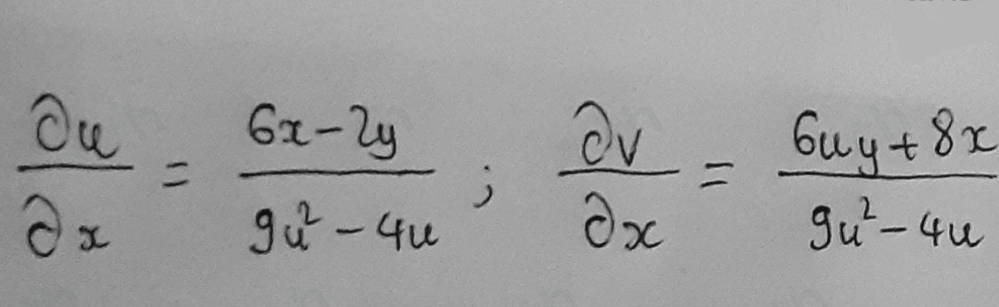 ∂u/∂x = (6x - 2y)/(9u² - 4u) ; ∂v/∂x = (6uy + 8x)/(9u² - 4u)